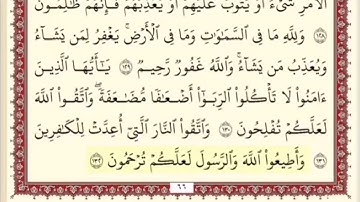 ٱلْأَمْرِ شَىْءٌ أَوْ يَتُوبَ عَلَيْهِمْ أَوْ يُعَذِّبَهُمْ فَإِنَّهُمْ ظَـٰلِمُونَ
١٢٨ وَلِلَّهِ مَا فِى ٱلسَّمَـٰوَٰتِ وَمَا فِى ٱلْأَرْضِ ۚ يَغْفِرُ لِمَن يَشَآءُ
وَيُعَذِّبُ مَن يَشَآءُ ۚ وَٱللَّهُ غَفُورٌ رَّحِيمٌ ١٢٩ يَـٰٓأَيُّهَا ٱلَّذِينَ
ءَامَنُوا۟ لَا تَأْكُلُوا۟ ٱلرِّبَوٰٓا۟ أَضْعَـٰفًا مُّضَـٰعَفَةً ۖ وَٱتَّقُوا۟ ٱللَّهَ
لَعَلَّكُمْ تُفْلِحُونَ ١٣٠ وَٱتَّقُوا۟ ٱلنَّارَ ٱلَّتِىٓ أُعِدَّتْ لِلْكَـٰفِرِينَ
١٣١ وَأَطِيعُوا۟ ٱللَّهَ وَٱلرَّسُولَ لَعَلَّكُمْ تُرْحَمُونَ ١٣٢
٦٦